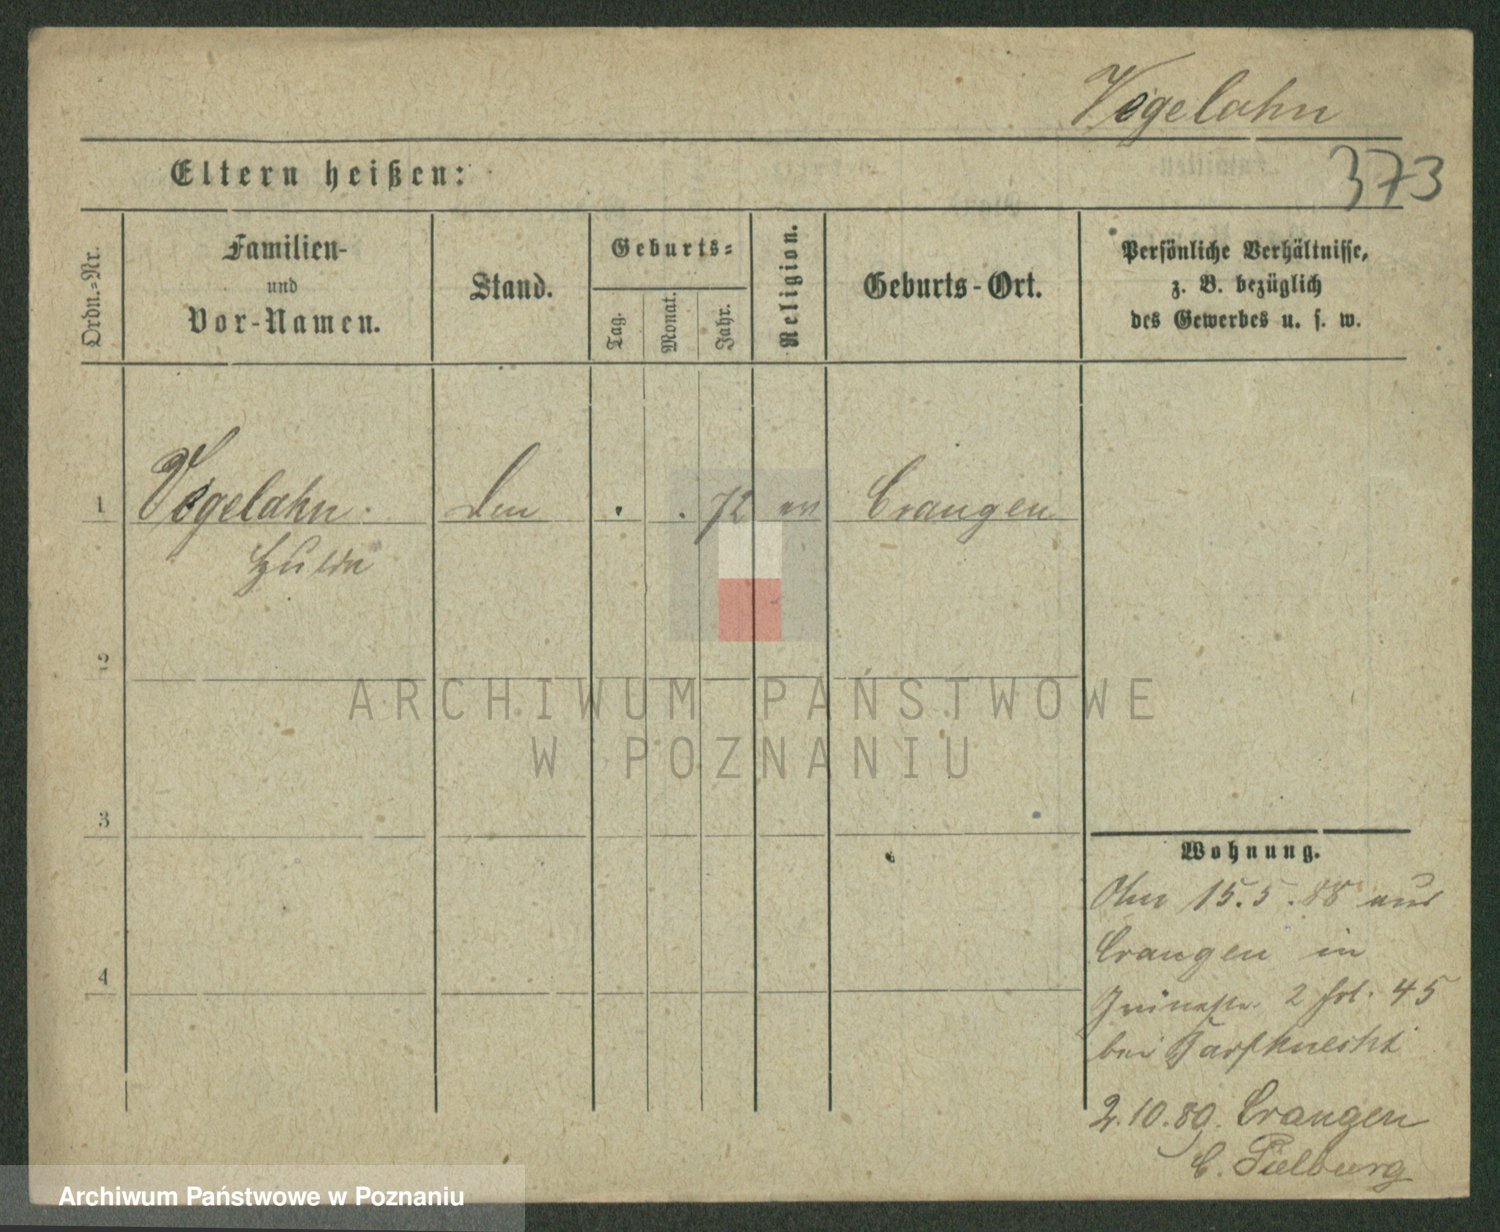 Vegelahn
373
Eltern heißen:
Ordn.-Nr.
Familien-
und
Vor-Namen.
Stand.
Geburts-
Tag.
Monat.
Jahr.
Religion.
Geburts-Ort.
Persönliche Verhältnisse,
z. B. bezüglich
des Gewerbes u. s. w.
1 Vegelahn 72 ev Crangen
Hulda
2
3
4
Wohnung.
15.5.88 aus
Crangen in
2 45
bei
2.10.89. Crangen
C. Pielburg
ARCHIWUM PAŃSTWOWE
W POZNANIU
Archiwum Państwowe w Poznaniu